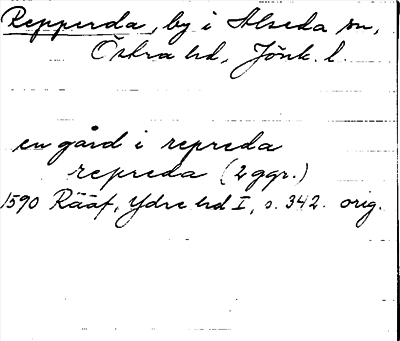 Repperda, by i Alseda sn,
Östra hd, Jönk. l.
en gård i repreda
repreda (2 ggr.)
1590 Rääf, Ydre hd I, s. 342. orig.